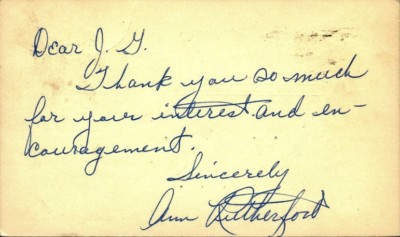 Dear J. G.
Thank you so much
for your interest and en-
couragement.
Sincerely
Ann Rutherford